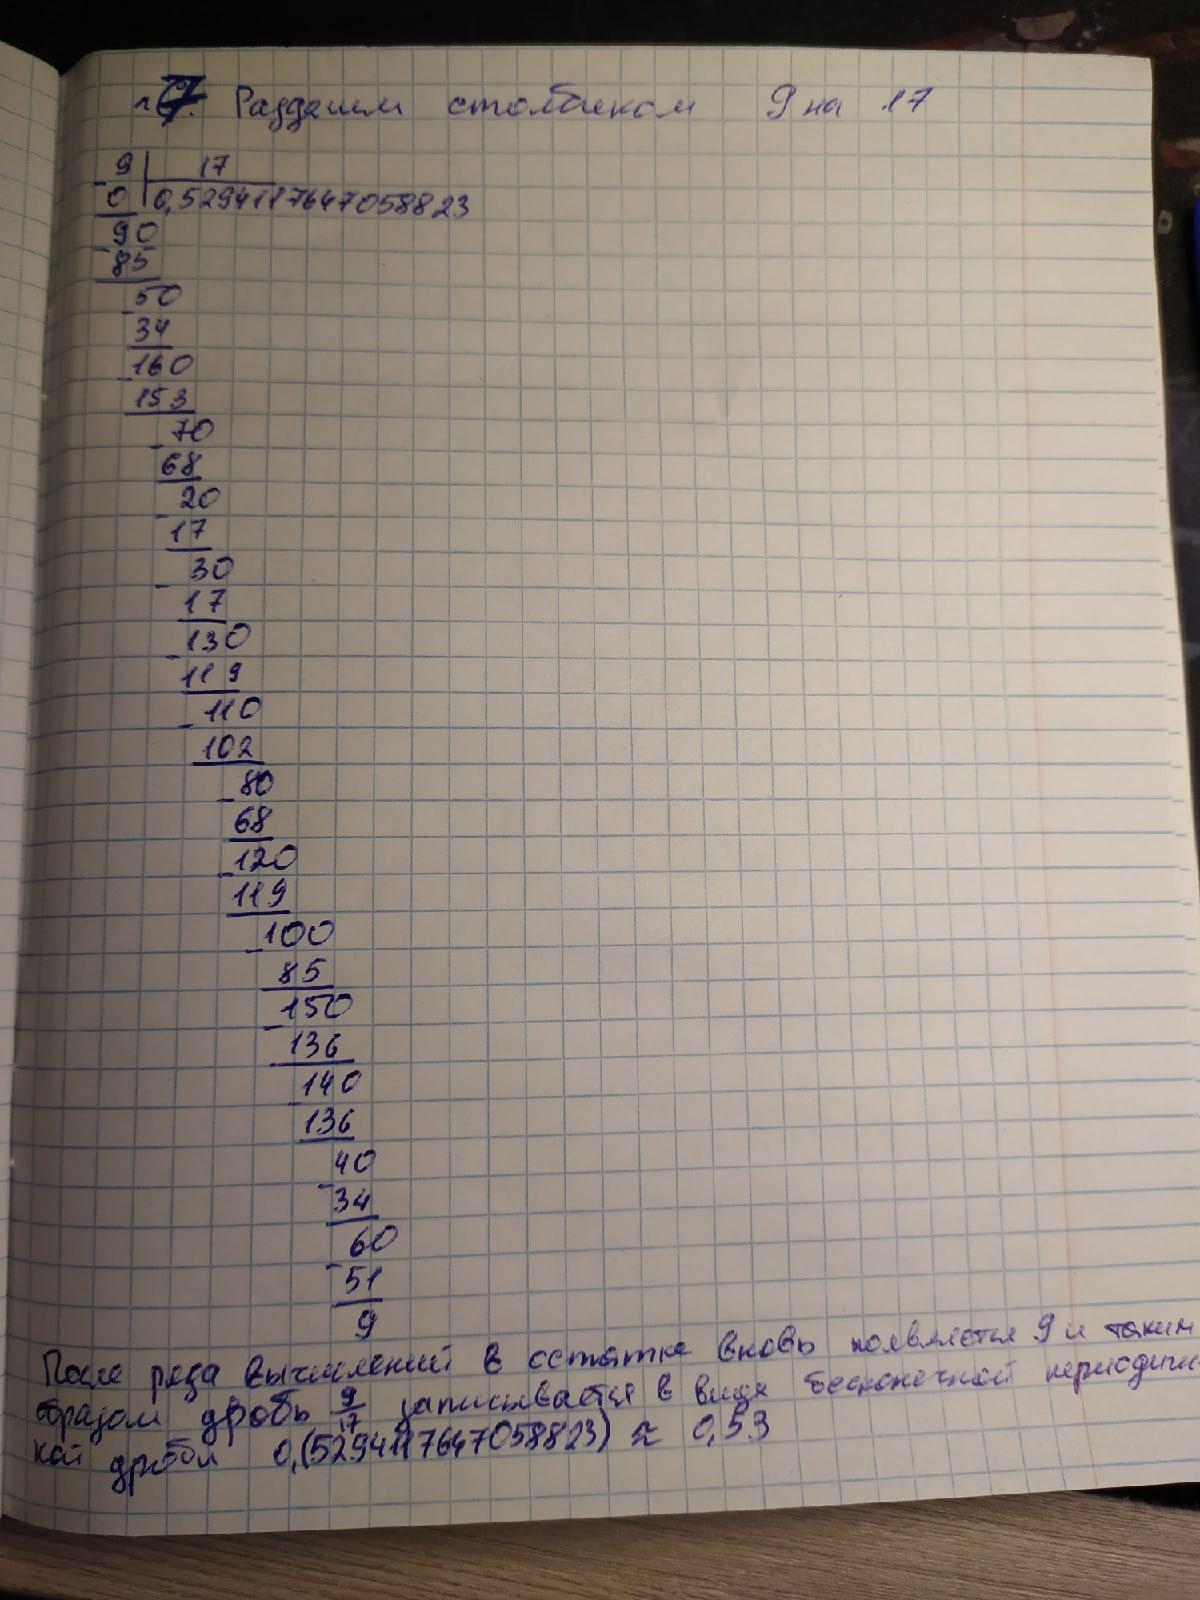 7. Разделим столбиком 9 на 17
9 | 17
- 0 | 0,5294117647058823
90
- 85
50
- 34
160
- 153
70
- 68
20
- 17
30
- 17
130
- 119
110
- 102
80
- 68
120
- 119
100
- 85
150
- 136
140
- 136
40
- 34
60
- 51
9
После ряда вычислений в остатке вновь появляется 9 и таким
образом дробь 9/17 записывается в виде бесконечной периодичес-
кой дроби 0,(5294117647058823) ≈ 0,53